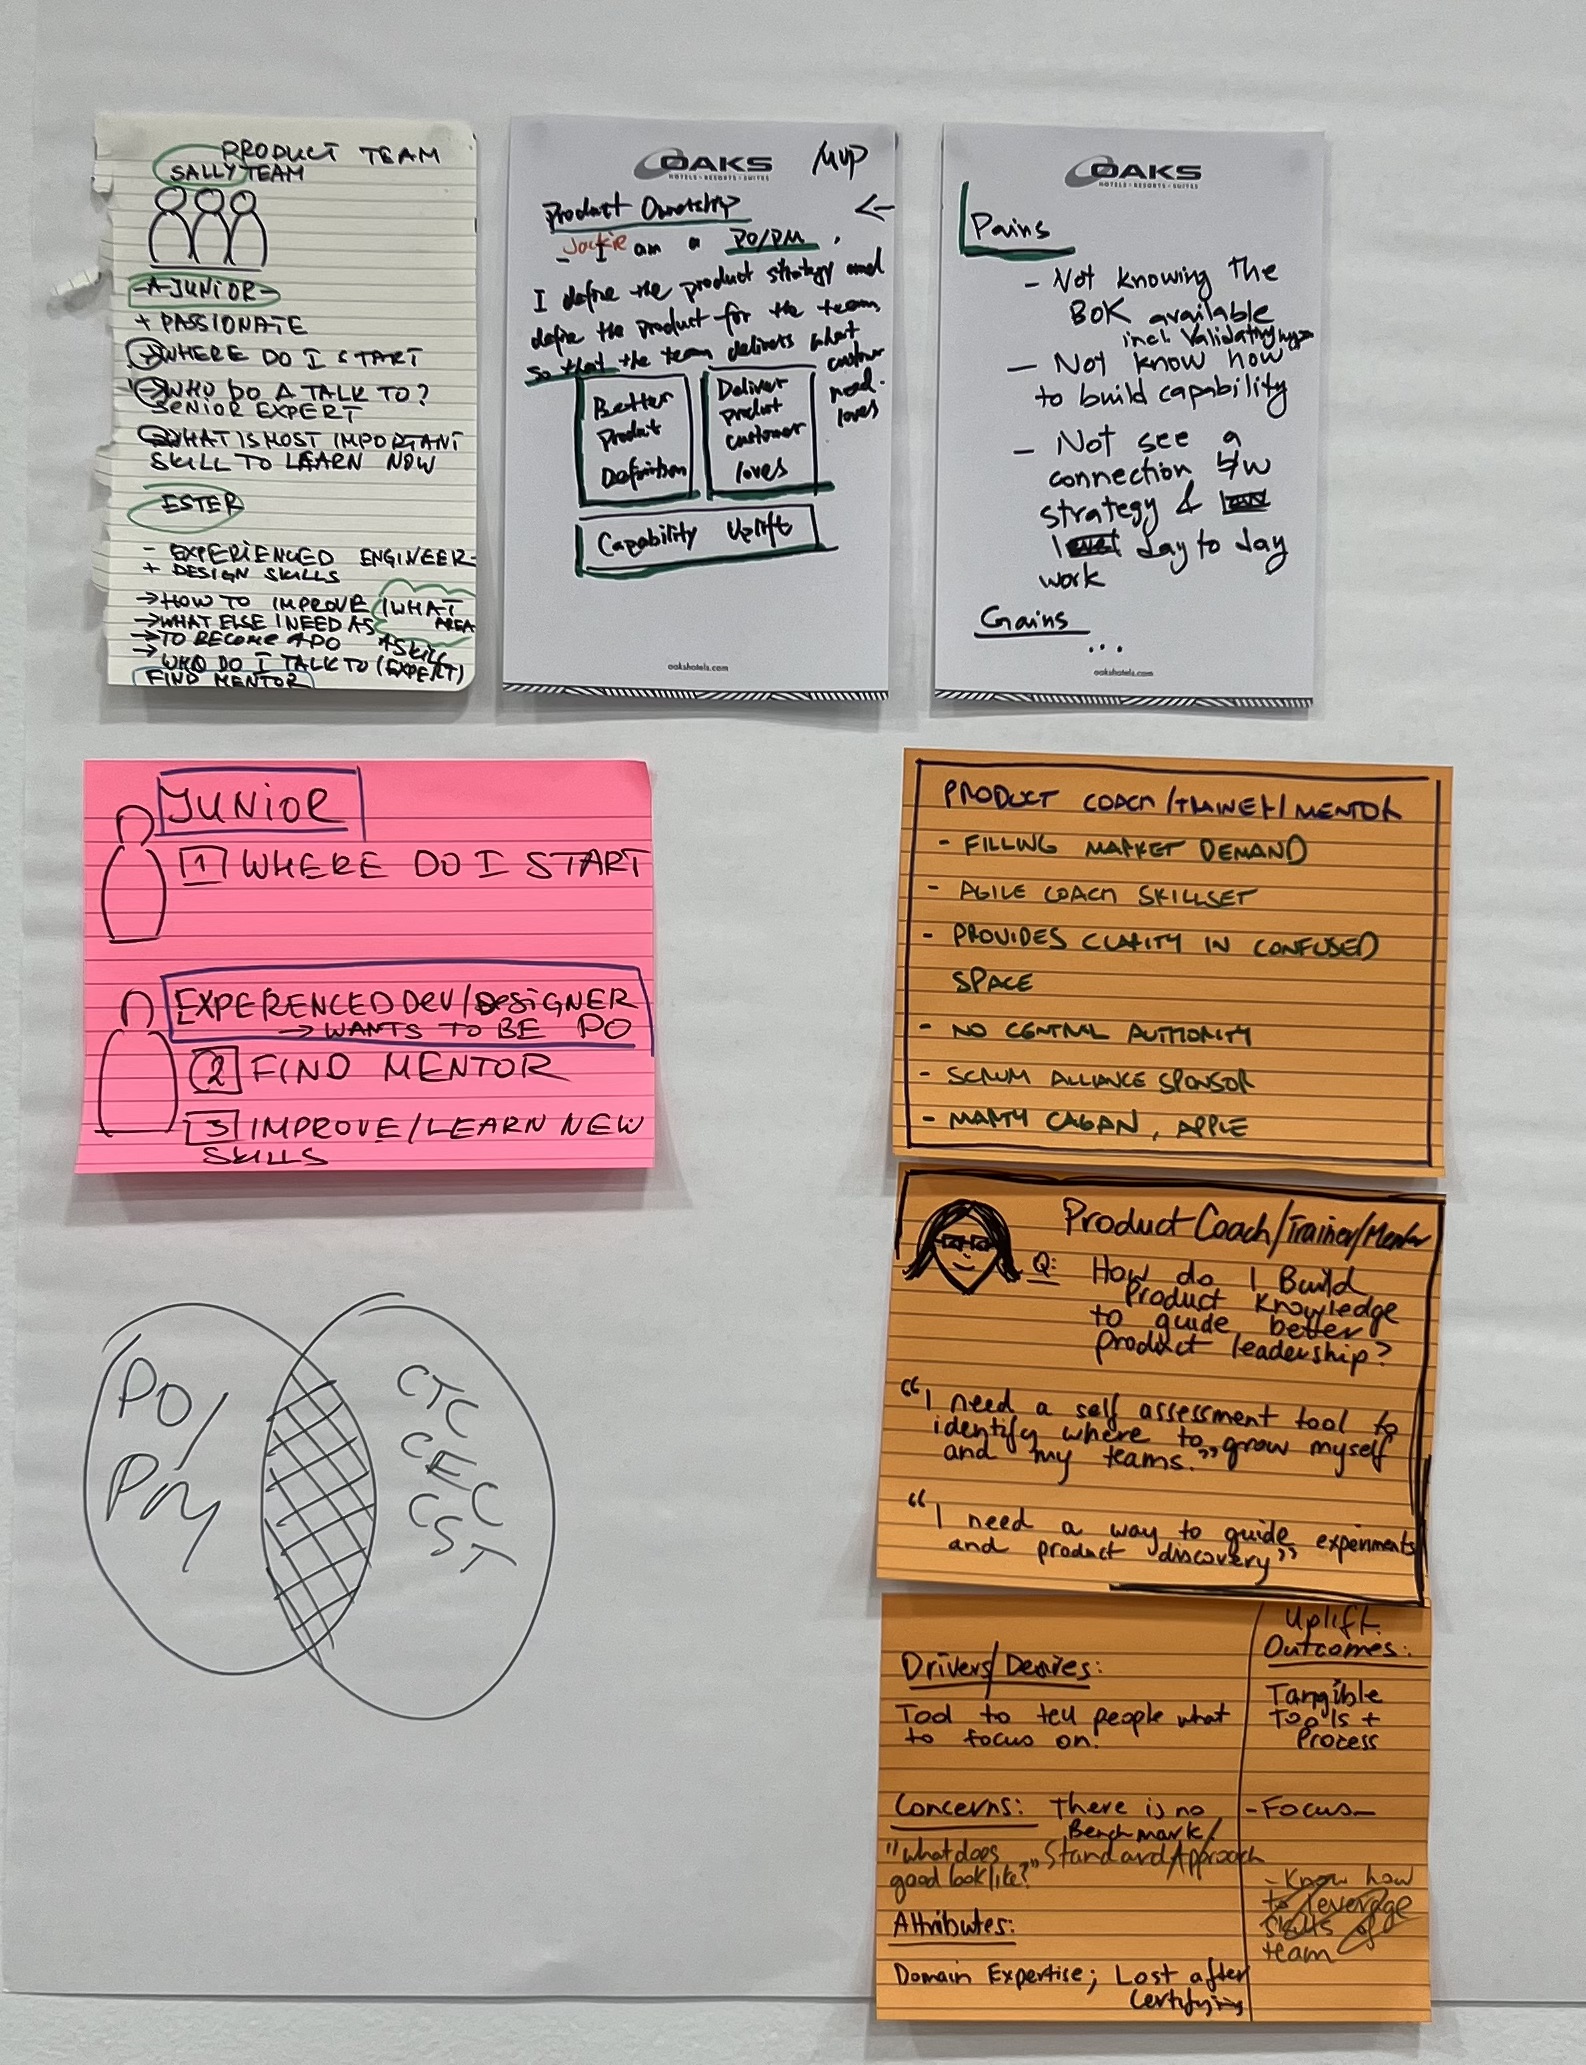 PRODUCT TEAM
SALLY TEAM
- A JUNIOR -
+ PASSIONATE
WHERE DO I START
WHO DO A TALK TO?
SENIOR EXPERT
WHAT IS MOST IMPORTANT
SKILL TO LEARN NOW
ESTER
- EXPERIENCED ENGINEER
+ DESIGN SKILLS
→ HOW TO IMPROVE (WHAT AREA
→ WHAT ELSE I NEED AS A SKILL
→ TO BECOME A PO
→ WHO DO I TALK TO (EXPERT)
FIND MENTOR
OAKS
HOTELS • RESORTS • SUITES
MVP
Product Ownership
←
- Jackie I am a PO/PM.
I define the product strategy and
define the product for the team,
so that the team delivers what
customer
need.
loves
Better
Product
Definition
Deliver
product
customer
loves
Capability Uplift
oakshotels.com
OAKS
HOTELS • RESORTS • SUITES
Pains
- Not knowing the
BOK available
incl. Validating hypo
- Not know how
to build capability
- Not see a
connection b/w
strategy &
day to day
work
Gains
...
oakshotels.com
JUNIOR
1 WHERE DO I START
EXPERIENCED DEV/DESIGNER
→ WANTS TO BE PO
2 FIND MENTOR
3 IMPROVE/LEARN NEW
SKILLS
PRODUCT COACH/TRAINER/MENTOR
- FILLING MARKET DEMAND
- AGILE COACH SKILLSET
- PROVIDES CLARITY IN CONFUSED
SPACE
- NO CENTRAL AUTHORITY
- SCRUM ALLIANCE SPONSOR
- MARTY CAGAN, APPLE
Product Coach/Trainer/Mentor
Q: How do I Build
Product Knowledge
to guide better
product leadership?
"I need a self assessment tool to
identify where to grow myself
and my teams."
"I need a way to guide experiments
and product discovery"
PO/
PM
CTC
CEC
CST
Drivers/Desires:
Tool to tell people what
to focus on.
Concerns: There is no
Benchmark/
"what does Standard/Approach
good look like?"
Attributes:
Domain Expertise; Lost after
certifying
Uplift.
Outcomes:
Tangible
Tools +
Process
- Focus -
- Know how
to leverage
skills of
team